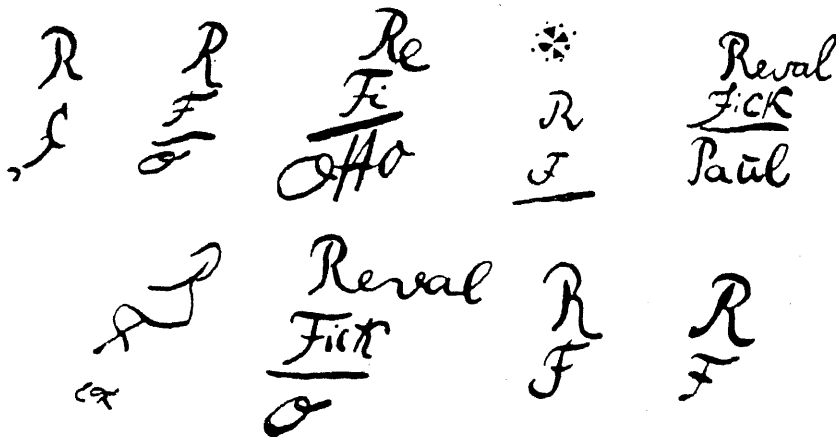 R
F
R
F
O
Re
Fi
Otto
R
F
Reval
Fick
Paul
Reval
Fick
O
R
F
R
F